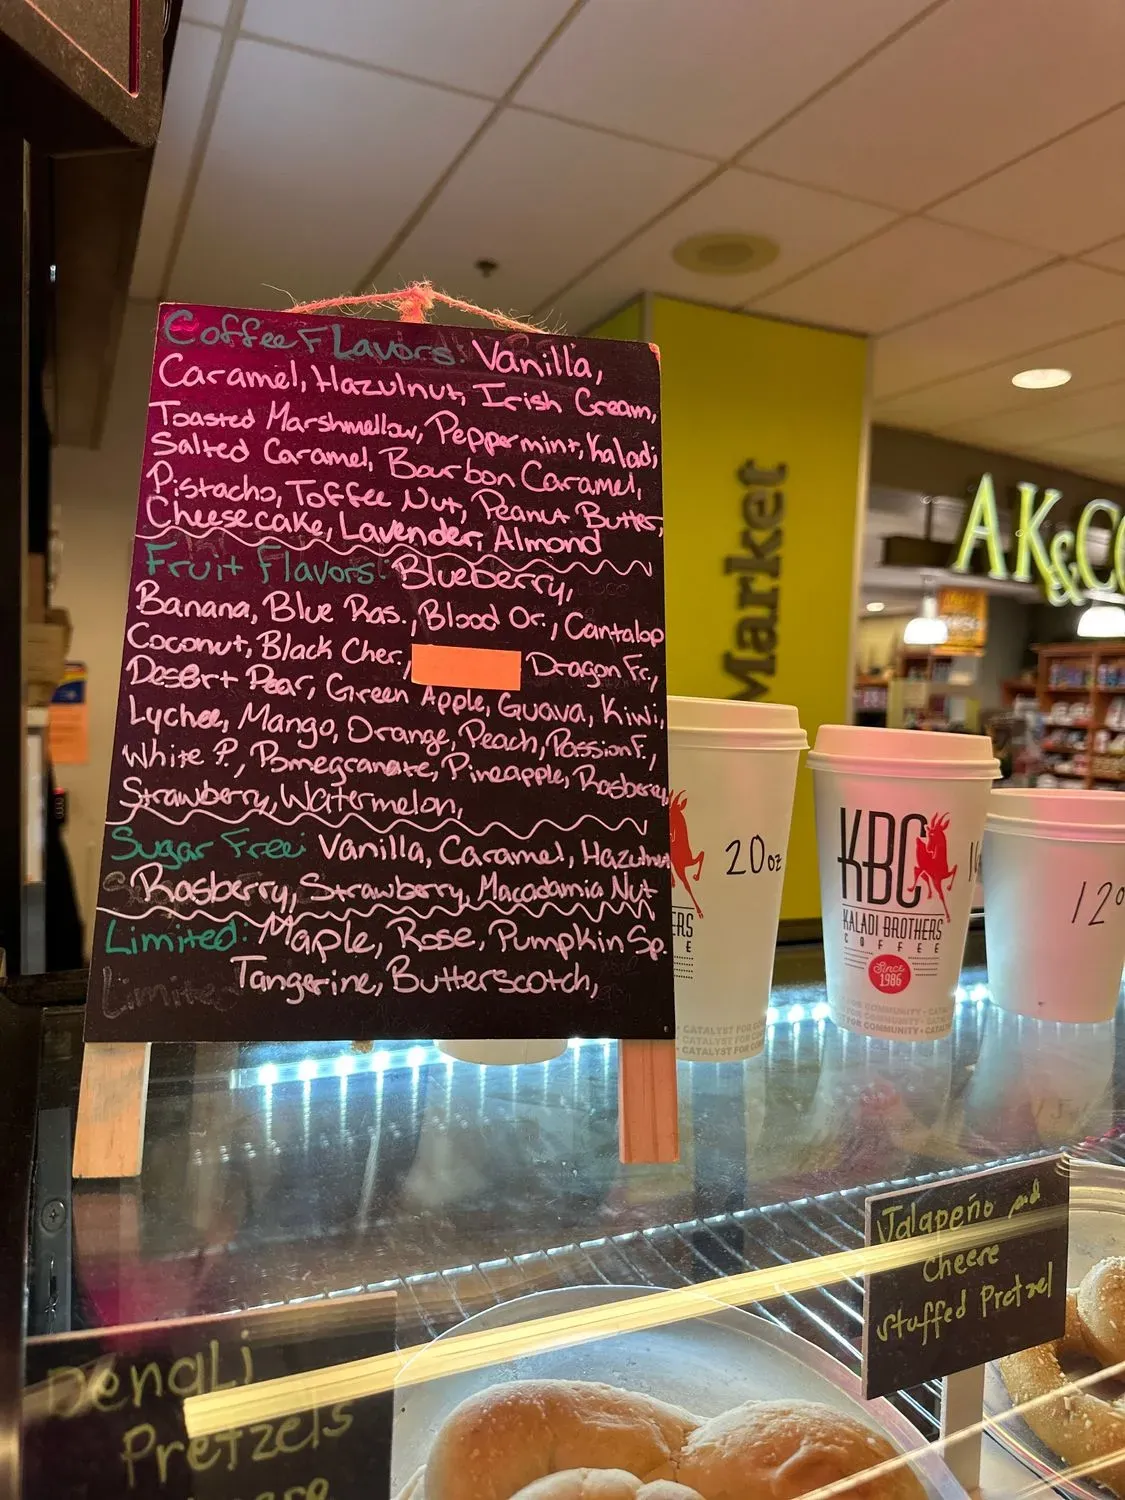 Coffee Flavors: Vanilla,
Caramel, Hazulnut, Irish Cream,
Toasted Marshmellow, Peppermint, Kaladi
Salted Caramel, Bourbon Caramel,
Pistacho, Toffee Nut, Peanut Butter,
Cheesecake, Lavender, Almond
Fruit Flavors: Blueberry,
Banana, Blue Ras., Blood Or., Cantalop
Coconut, Black Cher., Dragon Fr.,
Desert Pear, Green Apple, Guava, Kiwi,
Lychee, Mango, Orange, Peach, Passion F.,
White P., Pomegranate, Pineapple, Rasberry,
Strawberry, Watermelon,
Sugar Free: Vanilla, Caramel, Hazulnut
Rasberry, Strawberry, Macadamia Nut
Limited: Maple, Rose, Pumpkin Sp.
Tangerine, Butterscotch,
Market
AK&CO
20oz
ERS
E
CATALYST FOR
CATALYST FOR
CATALYST FOR
KBC
KALADI BROTHERS
COFFEE
Since
1986
FOR COMMUNITY
FOR COMMUNITY
FOR COMMUNITY
12
Jalapeño and
cheere
stuffed Pretzel
DenaLi
Pretzels